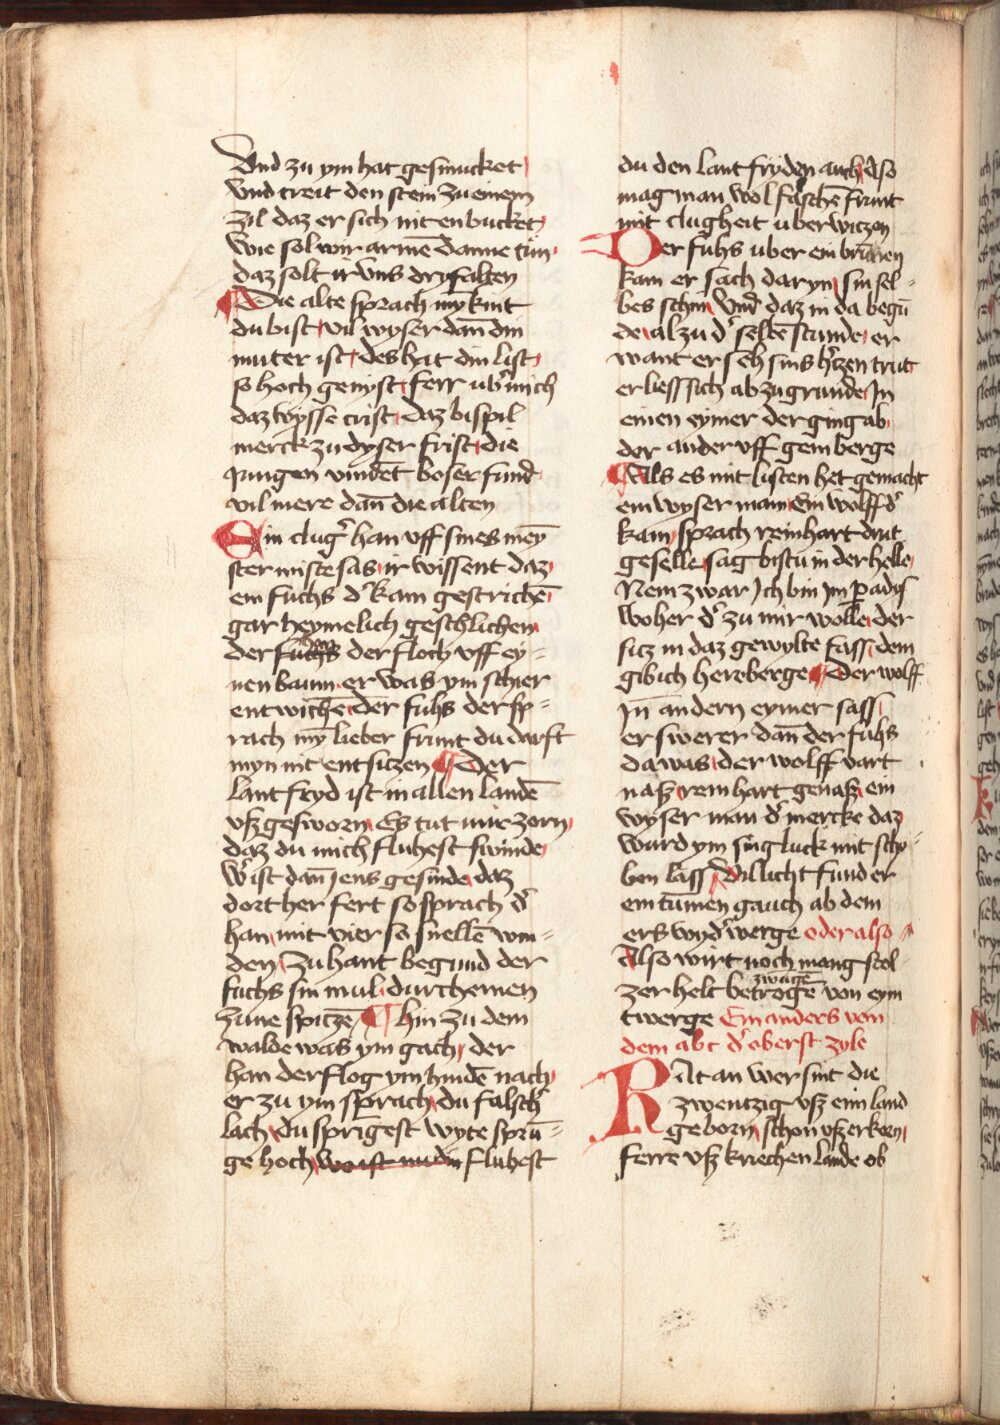 Vnd zu ym hat gesmucket
vnd treit den stein zu einem
zil daz er sich nit enbucket
wie sol wir arme danne tun
daz solt ir vns dryfalten
Die alte sprach my kint
du bist vil wyser dan̄ din
muter ist des hat din list
so hoch genyst ferr ub᾽ mich
daz wysse crist daz bispil
merck zu dyser frist die
Jungen vindēt boser fund
vil mere dan̄ die alten
Ein clug᾽ han vff sines mey
ster miste sas ir wissent daz
ein fuchs d᾽ kam gestrichē
gar heymelich geschlichen
der han der floch vff ey-
nen baum er was ym schier
entwichē der fuhs der sp-
rach my lieber frunt du darft
myn nit entsitzen Der
lantfryd ist in allen landē
vsz gesworn Es tut mir zorn
daz du mich fluhest swinde
W᾽ ist dan̄ Jens gesinde daz
dort her fert so sprach d᾽
han mit vier so snellē win-
den Zu hant begund der
fuchs sin mul durch einen
zune spitzē hin zu dem
walde was ym gach der
han der flog ym hindē nach
er zu ym sprach du falsch᾽
lach du springest wyte sprū-
ge hoch fluhest
du den lantfryden auch Also
mag man wol falschē frunt
mit clugheit uberwitzen
Der fuhs uber ein brunnen
kam er sach daryn sin sel-
bes schin Vnd daz in da begū
de al zu d᾽ seltē stunde er
want er seh sins h᾽tzen trut
er liess sich ab zu grunde Jn
einen eymer der ging ab
der ander vff gem berge
Als es mit listen het gemacht
ein wyser man Ein wolff d᾽
kam sprach reinhart drut
geselle sag bistu in der helle
Nein zwar Jch bin jm padis
Woher d᾽ zu mir wolle der
sitz in daz gewylte fass dem
gib ich herberge Der wolff
Jn̄ andern eymer sass
er swerer dan̄ der fuhs
da was der wolff vart
nasz reinhart genasz ein
wyser man d᾽ mercke daz
ward ym sin gluck mit schy-
ben lass Villicht fund er
ein tumen gauch ab dem
ers wyd᾽ werge oder also
Also wirt noch mang stol
zer helt betrogē zwagē von eym
twerge Ein anders von
dem abc d᾽ oberst zyle
RAt an wer sint die
zwentzig vsz eim land
geborn schon vsz erkorn
ferre vsz kriechen lande ob